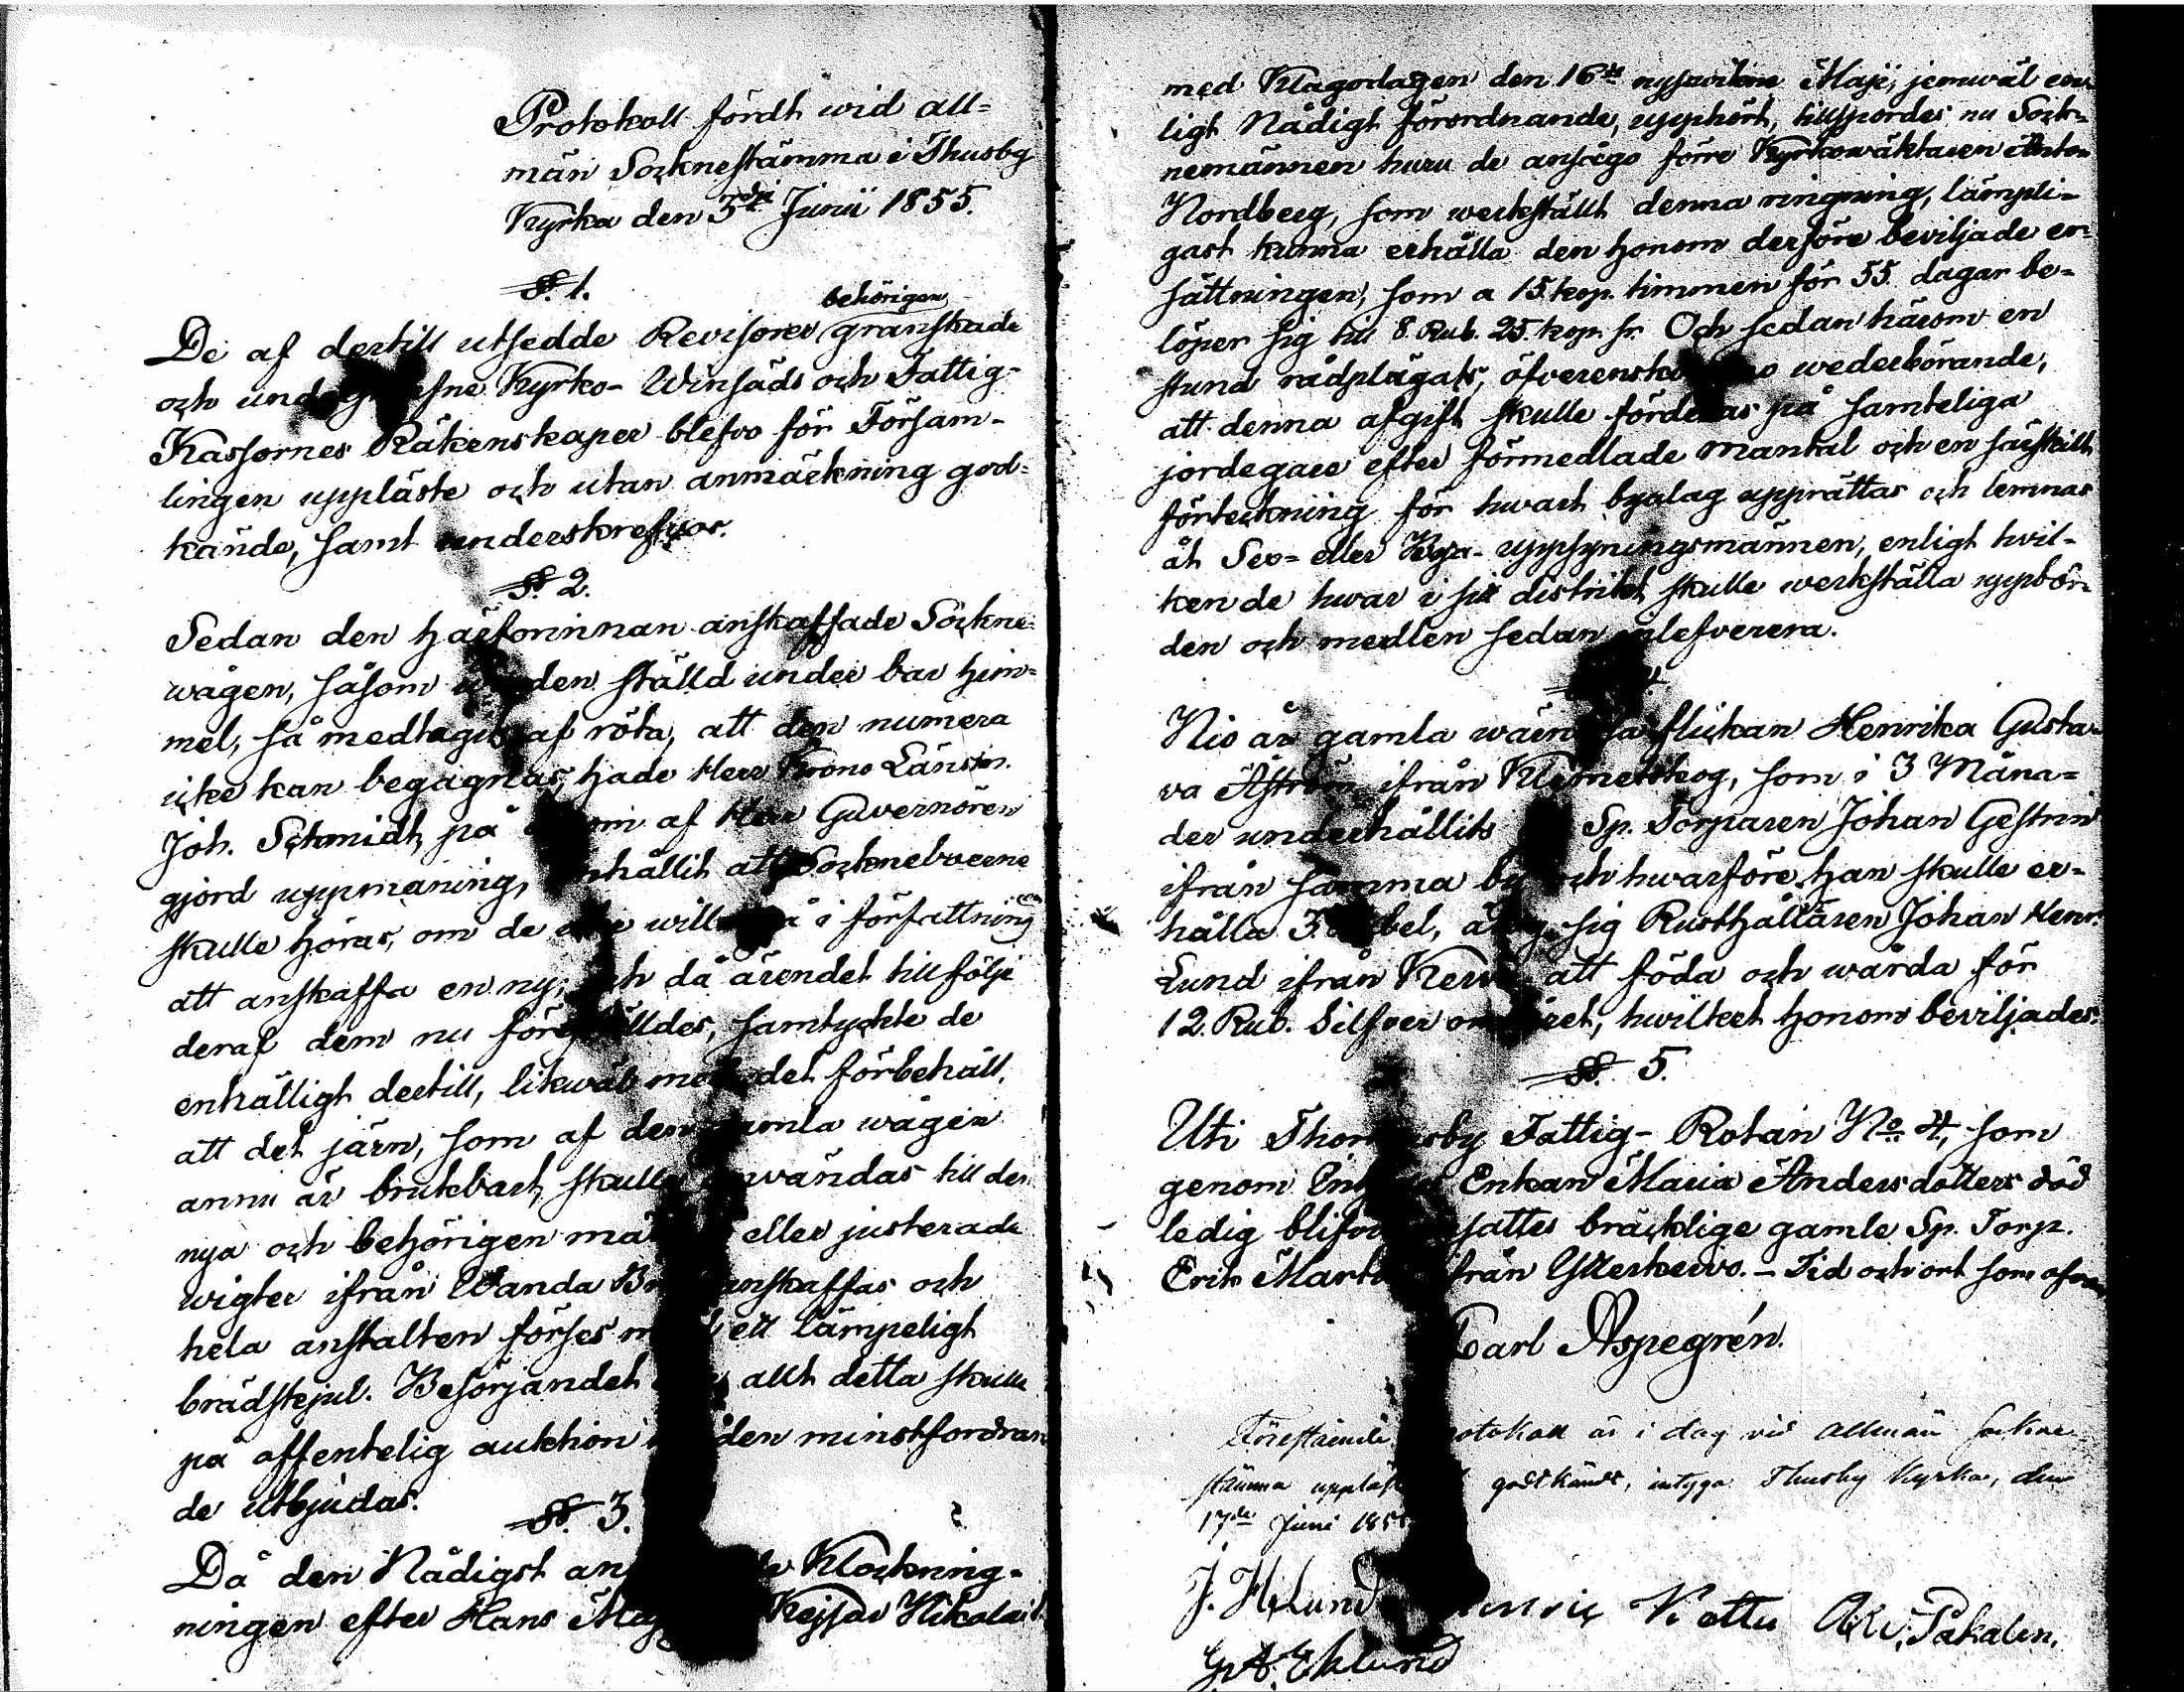 Protokoll fördt wid all-
män Socknestämma i Thusby
Kyrka den 3dje Junii 1855.
§. 1.
behörigen
De af dertill utsedde Revisorer granskade
och Kyrko- Winsäds och Fattig-
Kassornes Räkenskaper blefvo för Försam-
lingen uppläste och utan anmärkning god-
kände, samt underskrefvos.
§. 2.
Sedan den härforinnan anskaffade Sockne-
wågen, såsom ställd under bar him-
mel, så medtagits af röta, att den numera
icke kan begagnas, hade Herr Krono Länsm.
Joh. Schmidt, på af Herr Guvernören
gjord uppmaning, att Sockneboerne
skulle höras, om de i författning
att anskaffa en ny, och då ärendet till följe
deraf dem nu föreställdes, samtyckte de
enhälligt dertill, likwäl med det förbehåll,
att det järn, som af den gamla wågen
annu är brukbart, skulle användas till den
nya och behörigen eller justerade
wigter ifrån Wanda anskaffas och
hela anstalten förses med ett lämpeligt
brädskjul. Besörjandet allt detta skulle
på offentelig auktion den minstfordran
de utbjudas.
§. 3.
Då den Nådigst Klockring-
ningen efter Hans Kejsar Nikolai
med Klagodagen den 16de Maji, jemwäl en-
ligt Nådigt förordnande, upphört, tillspordes nu Sock-
nemännen huru de ansågo förre Kyrkowäktaren Anton
Nordberg, som werkställt denna ringning, lämpli-
gast kunna erhålla den honom derföre beviljade er-
sättningen, som a 15. kop. timmen för 55. dagar be-
löper sig till 8. Rub. 25. kop. sr. Och sedan härom en
stund rådplägats, wederbörande,
att denna afgift skulle fördelas på samteliga
jordegare efter förmedlade mantal och en särskilt
förteckning för hwart byalag upprättas och lemnas
åt Sex- eller Bya- uppsyningsmännen, enligt hvil-
ken de hwar i sitt distrikt skulle werkställa uppbör-
den och medlen sedan inlefverera.
Nio år gamla flickan Henrika Gusta-
va Åström ifrån Klemetskog, som i 3 Måna-
der underhållits Sp. Torparen Johan Gestrin
ifrån samma by och hwarföre han skulle er-
hålla 3. Rubel, åtog sig Rusthållaren Johan Henr.
Lund ifrån att föda och wårda för
12. Rub. Silfver om året, hwilket honom beviljades.
§. 5.
Uti Fattig- Rotan No 4, som
genom Enkan Maria Andersdotters död
ledig blifvit bräcklige gamle Sp. Torp.
Erik ifrån Ytterkervo. - Tid och ort som ofvan
Carl Aspegrén.
Förestående Protokoll är i dag vid Allmän Sockne
stämma uppläst godtkändt, intyga Thusby Kyrka, den
17de Juni 185
J. H. Lund Kottu Pakalen.
G. A. Eklund